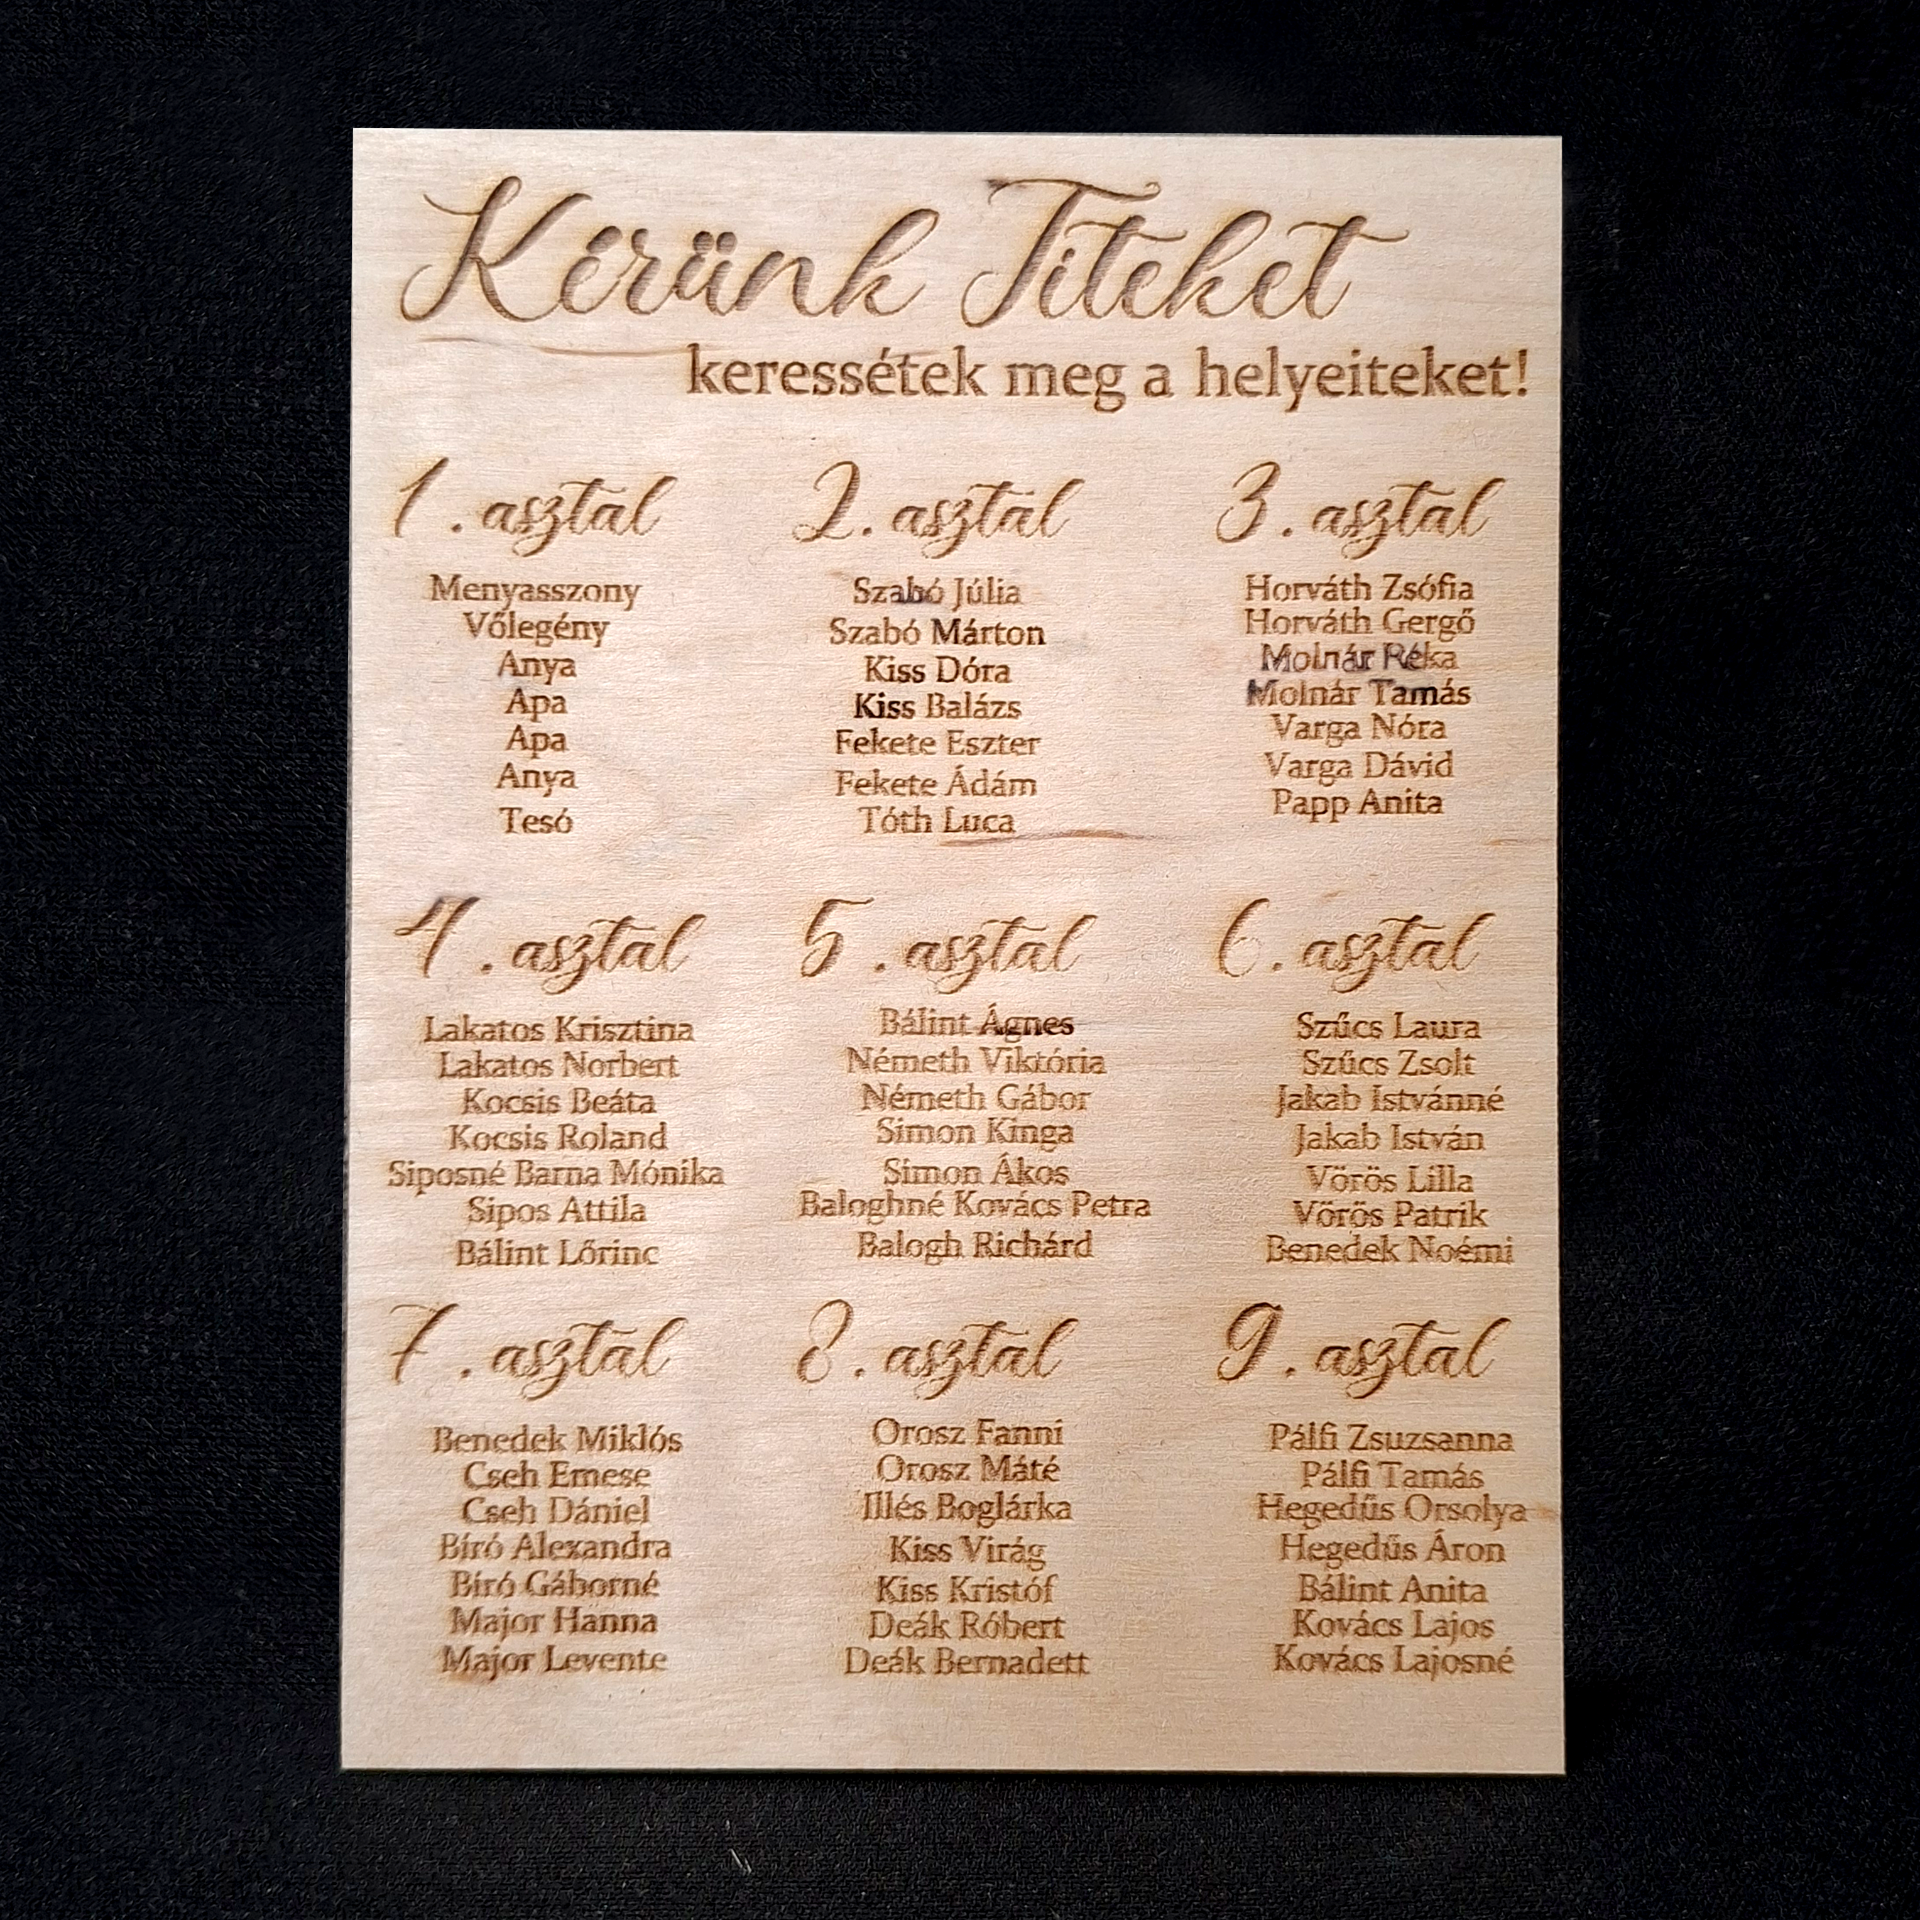 Kérünk Titeket
keressétek meg a helyeiteket!
1. asztal
Menyasszony
Vőlegény
Anya
Apa
Apa
Anya
Tesó
2. asztal
Szabó Júlia
Szabó Márton
Kiss Dóra
Kiss Balázs
Fekete Eszter
Fekete Ádám
Tóth Luca
3. asztal
Horváth Zsófia
Horváth Gergő
Molnár Réka
Molnár Tamás
Varga Nóra
Varga Dávid
Papp Anita
4. asztal
Lakatos Krisztina
Lakatos Norbert
Kocsis Beáta
Kocsis Roland
Siposné Barna Mónika
Sipos Attila
Bálint Lőrinc
5. asztal
Bálint Ágnes
Németh Viktória
Németh Gábor
Simon Kinga
Simon Ákos
Baloghné Kovács Petra
Balogh Richárd
6. asztal
Szűcs Laura
Szűcs Zsolt
Jakab Istvánné
Jakab István
Vörös Lilla
Vörös Patrik
Benedek Noémi
7. asztal
Benedek Miklós
Cseh Emese
Cseh Dániel
Bíró Alexandra
Bíró Gáborné
Major Hanna
Major Levente
8. asztal
Orosz Fanni
Orosz Máté
Illés Boglárka
Kiss Virág
Kiss Kristóf
Deák Róbert
Deák Bernadett
9. asztal
Pálfi Zsuzsanna
Pálfi Tamás
Hegedűs Orsolya
Hegedűs Áron
Bálint Anita
Kovács Lajos
Kovács Lajosné